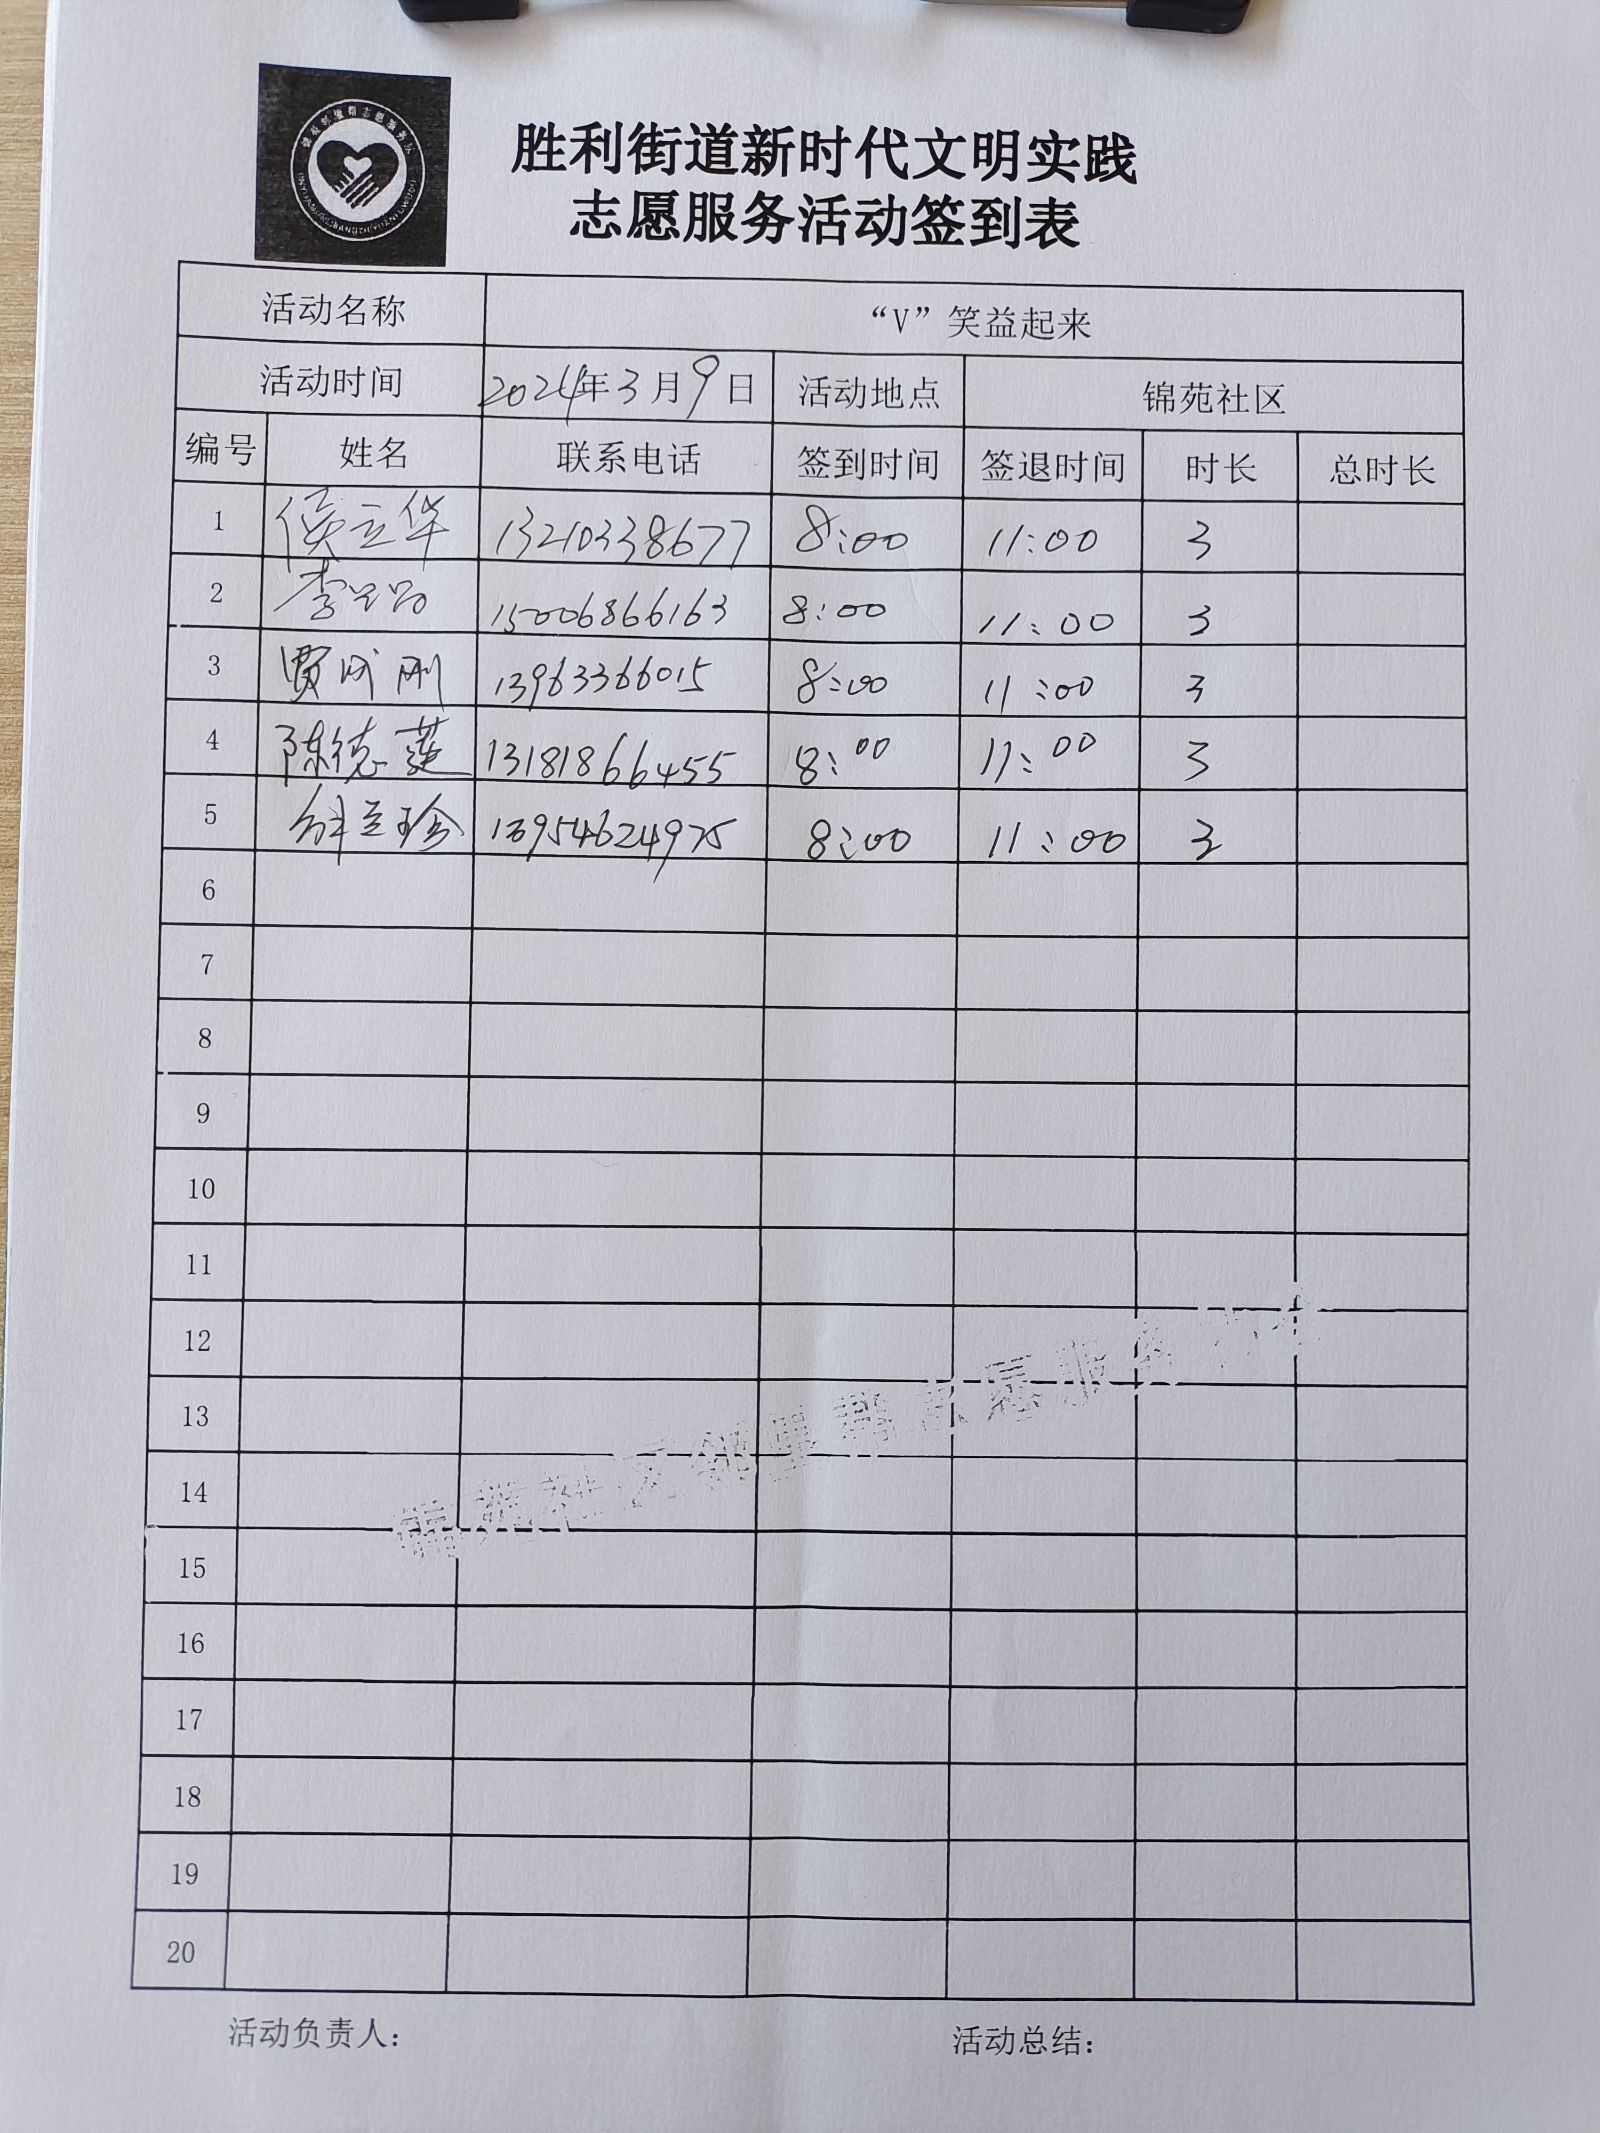 胜利街道新时代文明实践
志愿服务活动签到表
活动名称 “V”笑益起来
活动时间 2024年3月9日 活动地点 锦苑社区
编号 姓名 联系电话 签到时间 签退时间 时长 总时长
1 侯立华 13210338677 8:00 11:00 3
2 15006866163 8:00 11:00 3
3 贾成刚 13963366015 8:00 11:00 3
4 陈德莲 13181866455 8:00 11:00 3
5 13954624975 8:00 11:00 3
6
7
8
9
10
11
12
13
14
15
16
17
18
19
20
活动负责人： 活动总结：